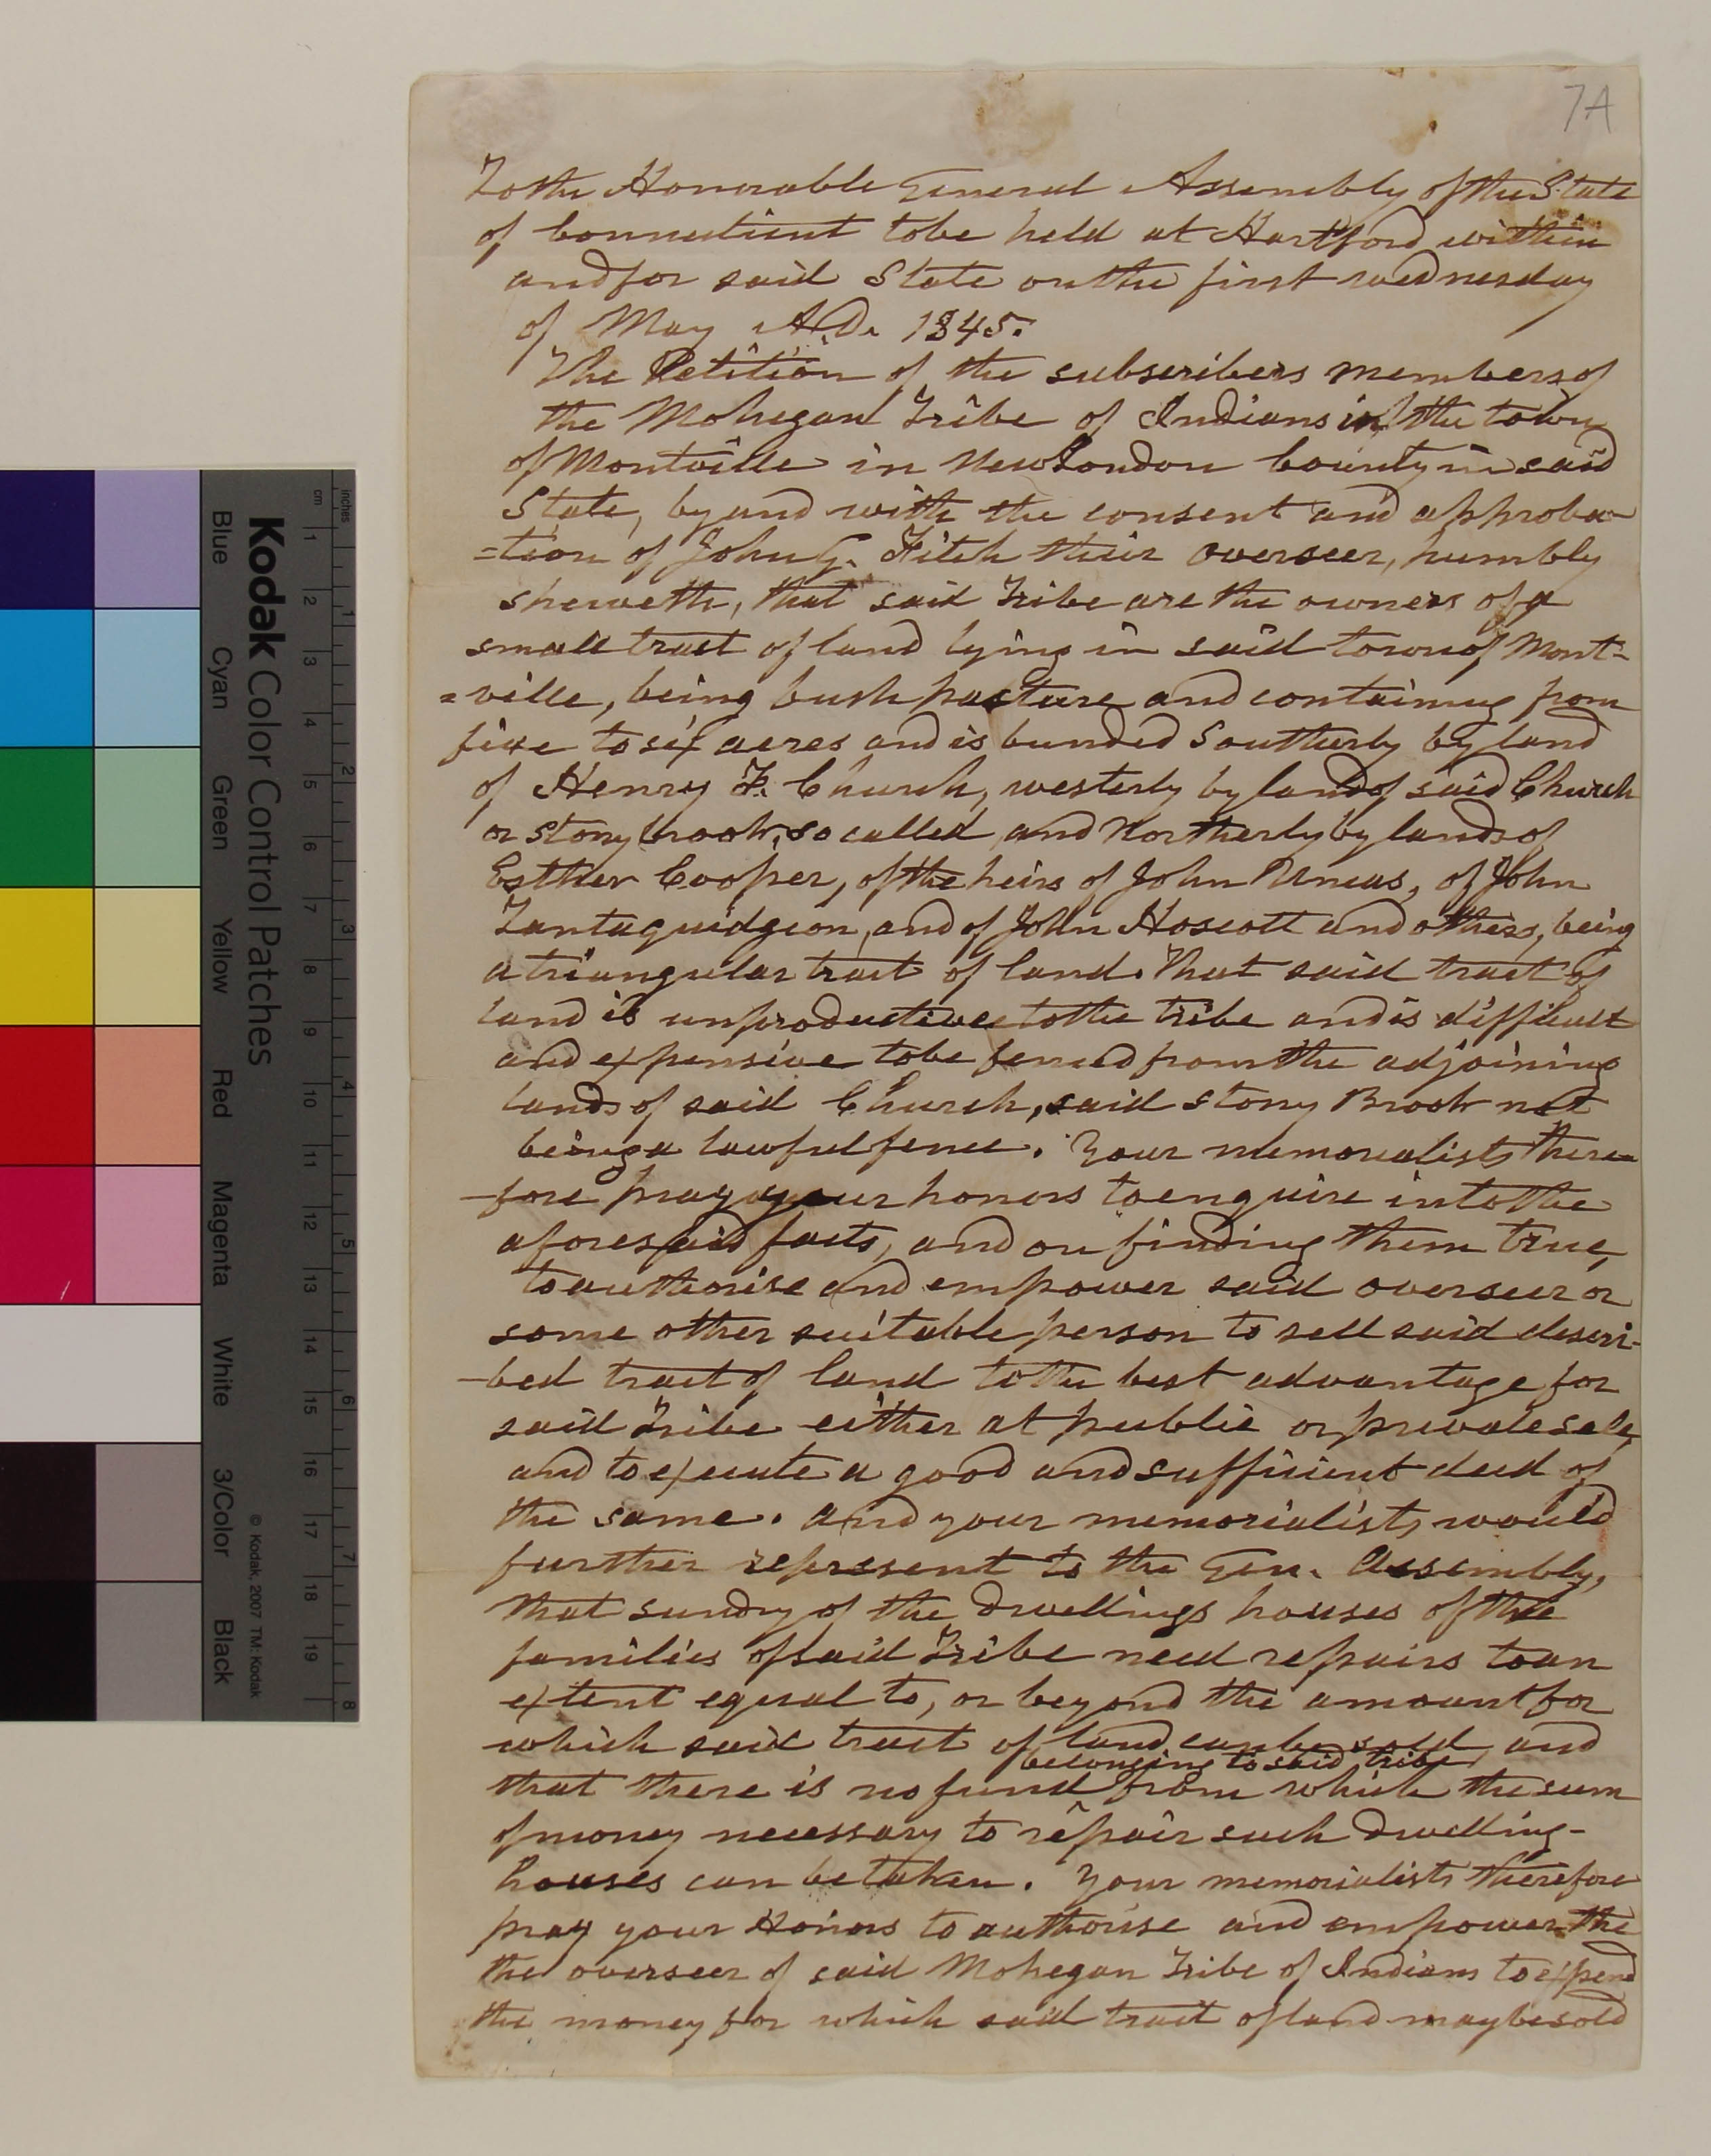 7A
To the Honorable General Assembly of the State
of Connecticut to be held at Hartford within
and for said State on the first wednesday
of May A.D. 1845.
The Petition of the subscribers members of
the Mohegan Tribe of Indians in the town
of Montville in New London County in said
State, by and with the consent and approba-
=tion of John G. Fitch their overseer, humbly
sheweth, that said Tribe are the owners of a
small tract of land lying in said town of Mont-
=ville, being bush pasture and containing from
five to six acres and is bunded Southerly by land
of Henry F. Church, westerly by land of said Church
or stony brook, so called, and Northerly by lands of
Esther Cooper, of the heirs of John Uncas, of John
Tantaquidgeon, and of John Hoscott and others, being
a triangular tract of land. That said tract of
land is unproductive to the tribe and is difficult
and expensive to be fenced from the adjoining
lands of said Church, said stony Brook not
being a lawful fence. Your memorialists there-
-fore pray your honors to enquire into the
aforesaid facts, and on finding them true,
to authorise and empower said overseer or
some other suitable person to sell said descri-
-bed tract of land to the best advantage for
said Tribe either at public or private sale,
and to execute a good and sufficient deed of
the same. And your memorialists would
further represent to the Gen. Assembly,
that sundry of the dwellings houses of the
families of said Tribe need repairs to an
extent equal to, or beyond the amount for
which said tract of land can be sold, and
belonging to said tribe
that there is no fund from which the sum
of money necessary to repair such dwelling-
houses can be taken. Your memorialists therefore
pray your Honors to authorise and empower the
the overseer of said Mohegan Tribe of Indians to expend
the money for which said tract of land may be sold
Kodak Color Control Patches
Blue Cyan Green Yellow Red Magenta White 3/Color Black
© Kodak, 2007 TM: Kodak
inches 1 2 3 4 5 6 7 8
cm 1 2 3 4 5 6 7 8 9 10 11 12 13 14 15 16 17 18 19